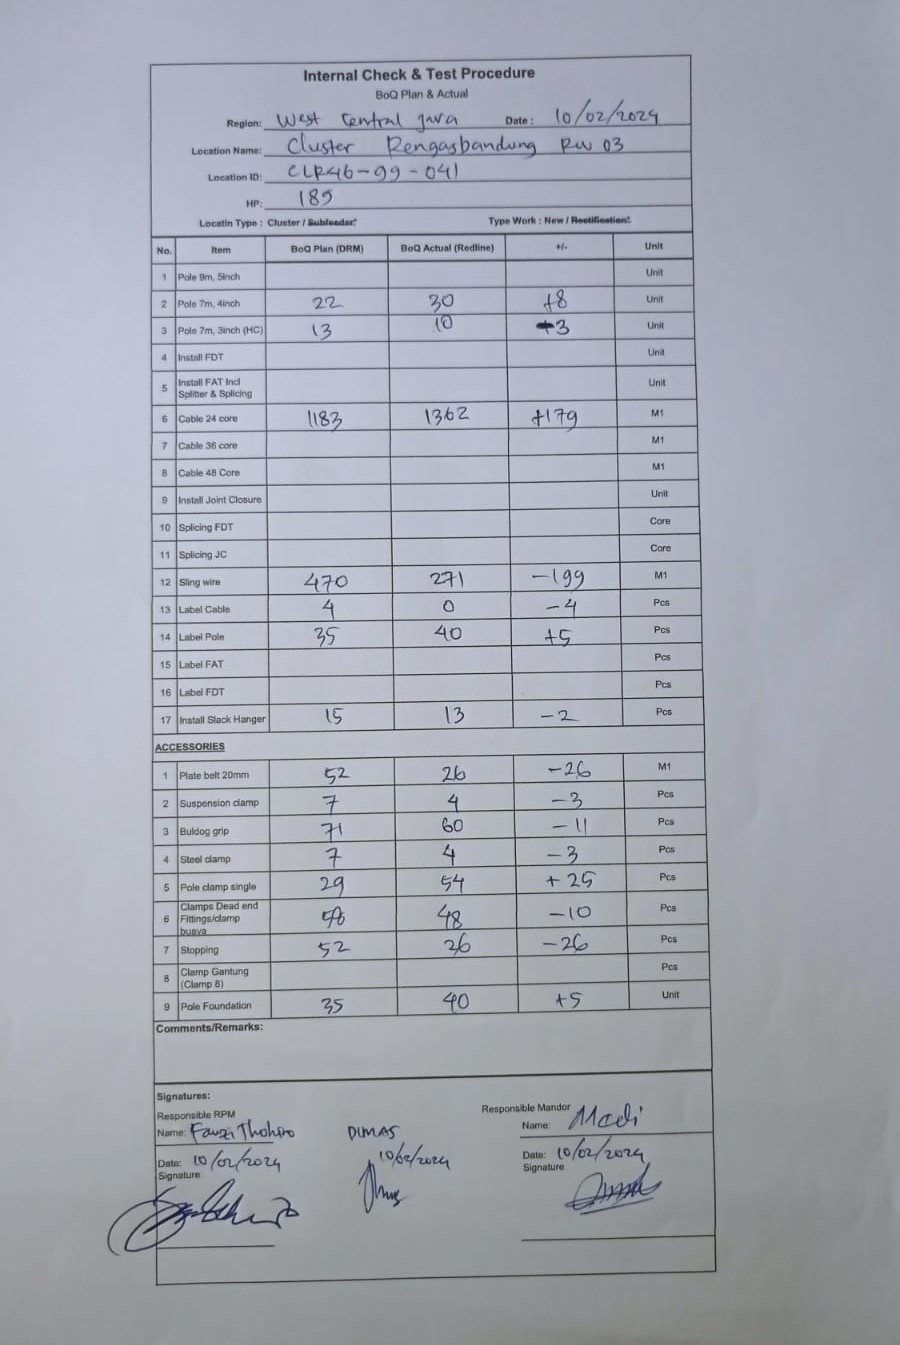 Internal Check & Test Procedure
BoQ Plan & Actual
Region: West Central Java Date: 10/02/2024
Location Name: Cluster Rengasbandung RW 03
Location ID: CLR46-99-041
HP: 189
Locatin Type : Cluster / Subfeeder* Type Work : New / Rectification*
No. Item BoQ Plan (DRM) BoQ Actual (Redline) +/- Unit
1 Pole 9m, 5inch Unit
2 Pole 7m, 4inch 22 30 +8 Unit
3 Pole 7m, 3inch (HC) 13 10 -3 Unit
4 Install FDT Unit
5 Install FAT Incl Unit
Splitter & Splicing
6 Cable 24 core 1183 1362 +179 M1
7 Cable 36 core M1
8 Cable 48 Core M1
9 Install Joint Closure Unit
10 Splicing FDT Core
11 Splicing JC Core
12 Sling wire 470 271 -199 M1
13 Label Cable 4 0 -4 Pcs
14 Label Pole 35 40 +5 Pcs
15 Label FAT Pcs
16 Label FDT Pcs
17 Install Slack Hanger 15 13 -2 Pcs
ACCESSORIES
1 Plate belt 20mm 52 26 -26 M1
2 Suspension clamp 7 4 -3 Pcs
3 Buldog grip 71 60 -11 Pcs
4 Steel clamp 7 4 -3 Pcs
5 Pole clamp single 29 54 +25 Pcs
Clamps Dead end
6 Fittings/clamp 58 48 -10 Pcs
buaya
7 Stopping 52 26 -26 Pcs
8 Clamp Gantung Pcs
(Clamp 8)
9 Pole Foundation 35 40 +5 Unit
Comments/Remarks:
Signatures:
Responsible RPM Responsible Mandor
Name: Fauzi Thohiro DIMAS Name: Madi
Date: 10/02/2024 10/02/2024 Date: 10/02/2024
Signature Signature